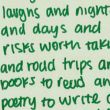 laughs and night
and days and
risks worth tak
and road trips and
books to read an
poetry to write